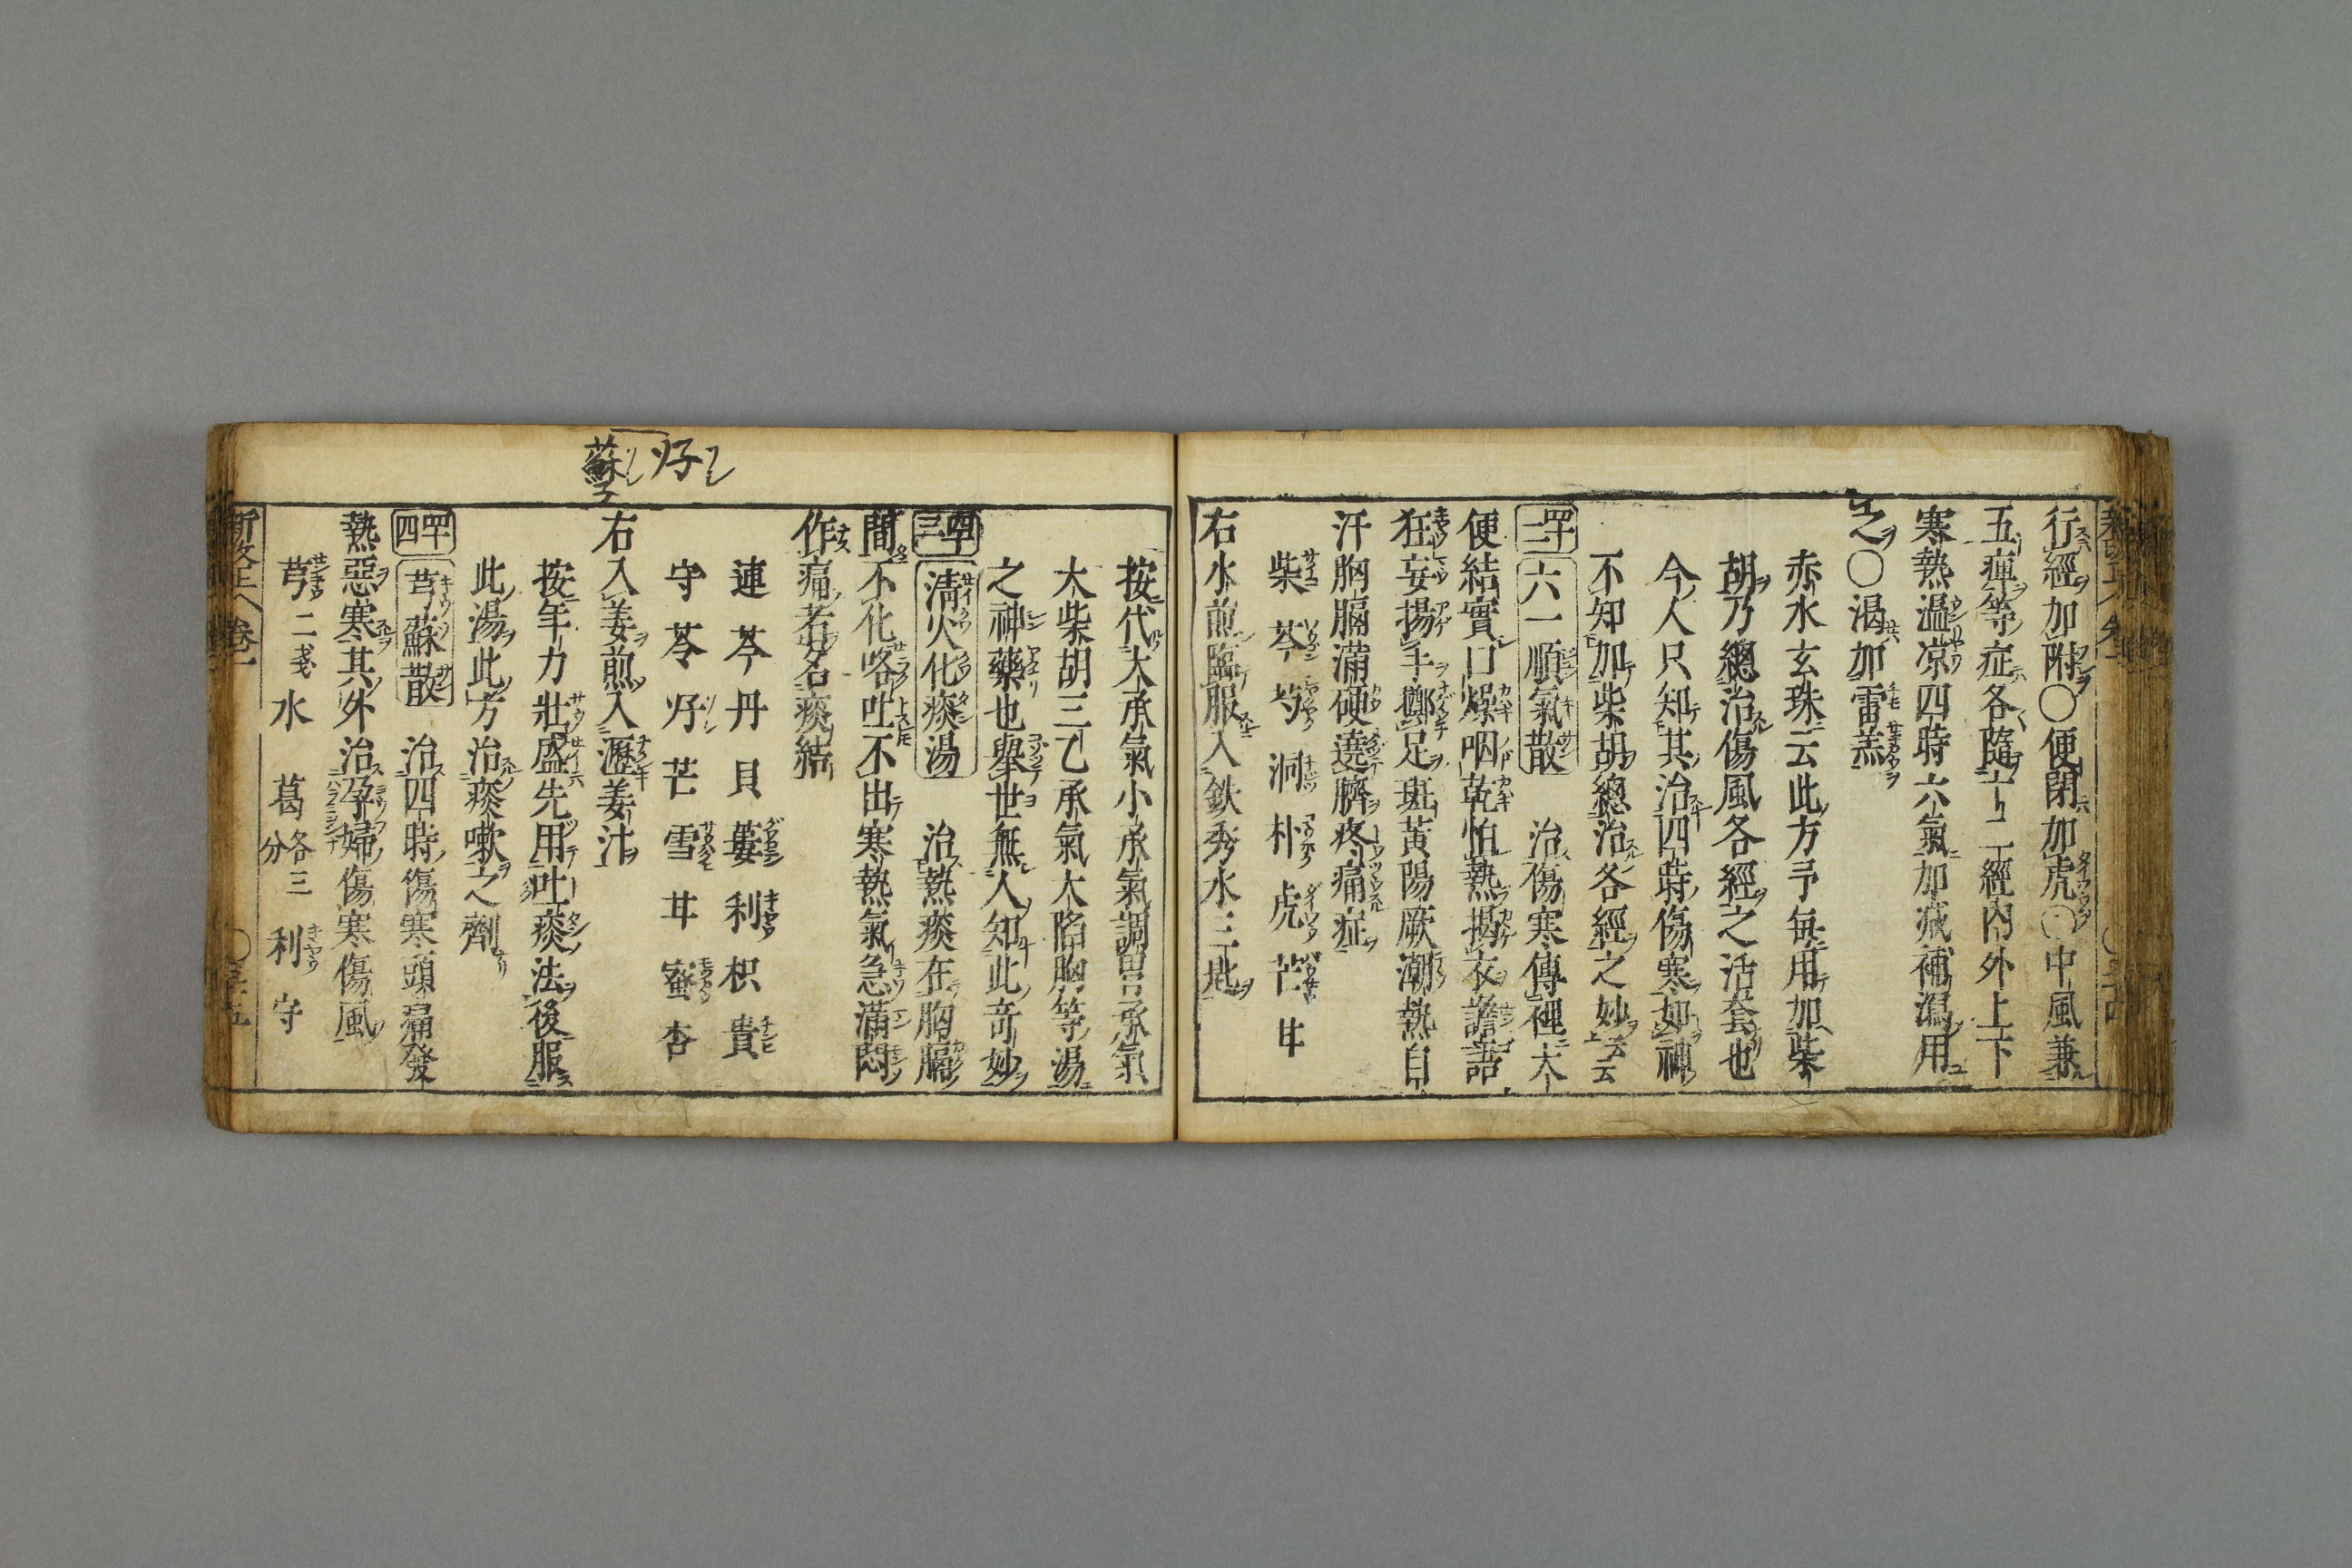 行經加附○便閉加虎○中風兼
五痺等症各隨十二經內外上下
寒熱温凉四時六氣加減補瀉用
之○渴加雷羔
赤水玄珠云此方予每用加柴
胡乃總治傷風各經之活套也
今人只知其治四時傷寒如神
不知加柴胡總治各經之妙云云
四十二 六一順氣散 治傷寒傳裡大
便結實口燥咽乾怕熱揭衣譫語
狂妄揚手擲足斑黃陽厥潮熱自
汗胸膈滿硬遶臍疼痛症
柴 芩 芍 洞 朴 虎 芒 甘
右水煎臨服入鉄秀水三匙
按代大承氣小承氣調胃承氣
大柴胡三乙承氣大陷胸等湯
之神藥也舉世無人知此奇妙
四十三 淸火化痰湯 治熱痰在胸膈
間不化咯吐不出寒熱氣急滿悶
作痛若名痰結
連 芩 丹 貝 蔞 利 枳 貴
守 苓 好 芒 雪 甘 蜜 杏
右入姜煎入瀝姜汁
按年力壯盛先用吐痰法後服
此湯此方治痰嗽之劑
四十四 芎蘇散 治四時傷寒頭痛發
熱惡寒其外治孕婦傷寒傷風
芎二戔 水 葛各三分 利 守
卷一
好
蘇